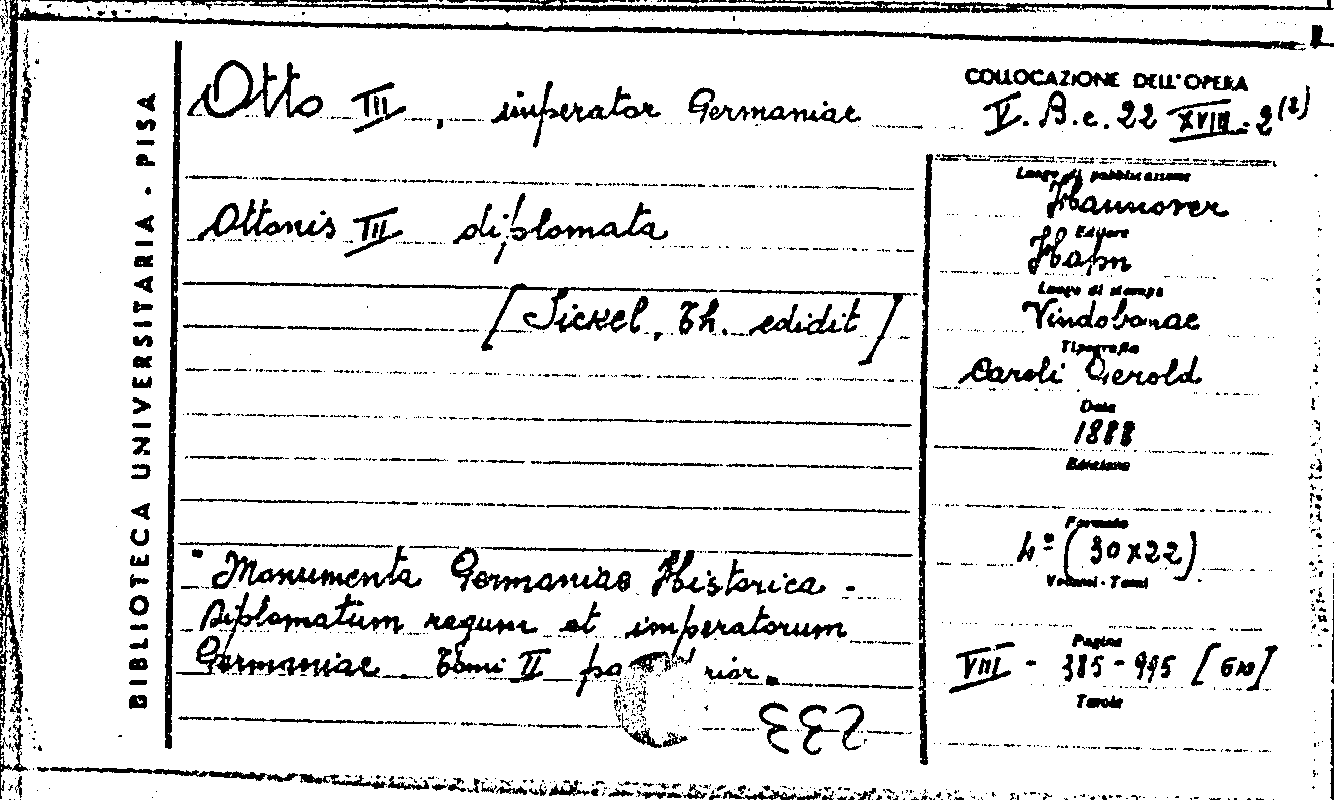 BIBLIOTECA UNIVERSITARIA - PISA
Otto III, imperator Germaniae
Ottonis III diplomata
[Sickel, Th. edidit]
"Monumenta Germaniae Historica -
Diplomatum regum et imperatorum
Germaniae. Tomi II pa rior.
COLLOCAZIONE DELL'OPERA
V. B.c. 22 XVIII-2(2)
Luogo di pubblicazione
Hannover
Editore
Hahn
Luogo di stampa
Vindobonae
Tipografia
Caroli Gerold
Data
1888
Edizione
Formato
4º (30x22)
Volumi - Tomi
Pagine
VIII - 385-995 [610]
Tavole